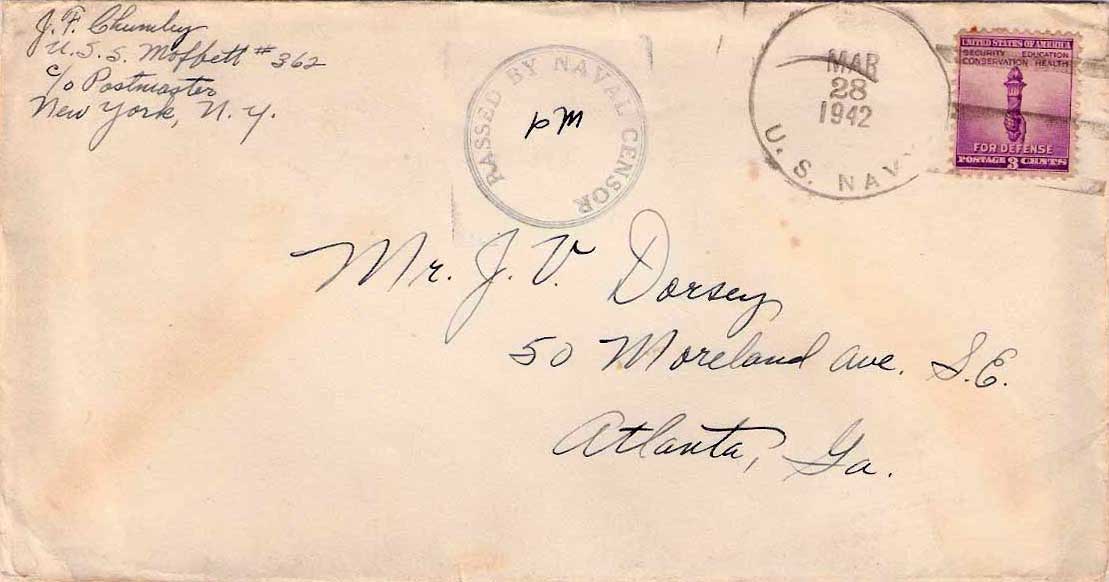 J. F. Chumley
U.S.S. Moffett # 362
c/o Postmaster
New York, N.Y.
PASSED BY NAVAL CENSOR
MAR
28
1942
U. S. NAVY
UNITED STATES OF AMERICA
SECURITY EDUCATION
CONSERVATION HEALTH
FOR DEFENSE
POSTAGE 3 CENTS
Mr. J. V. Dorsey
50 Moreland Ave. S.E.
Atlanta, Ga.